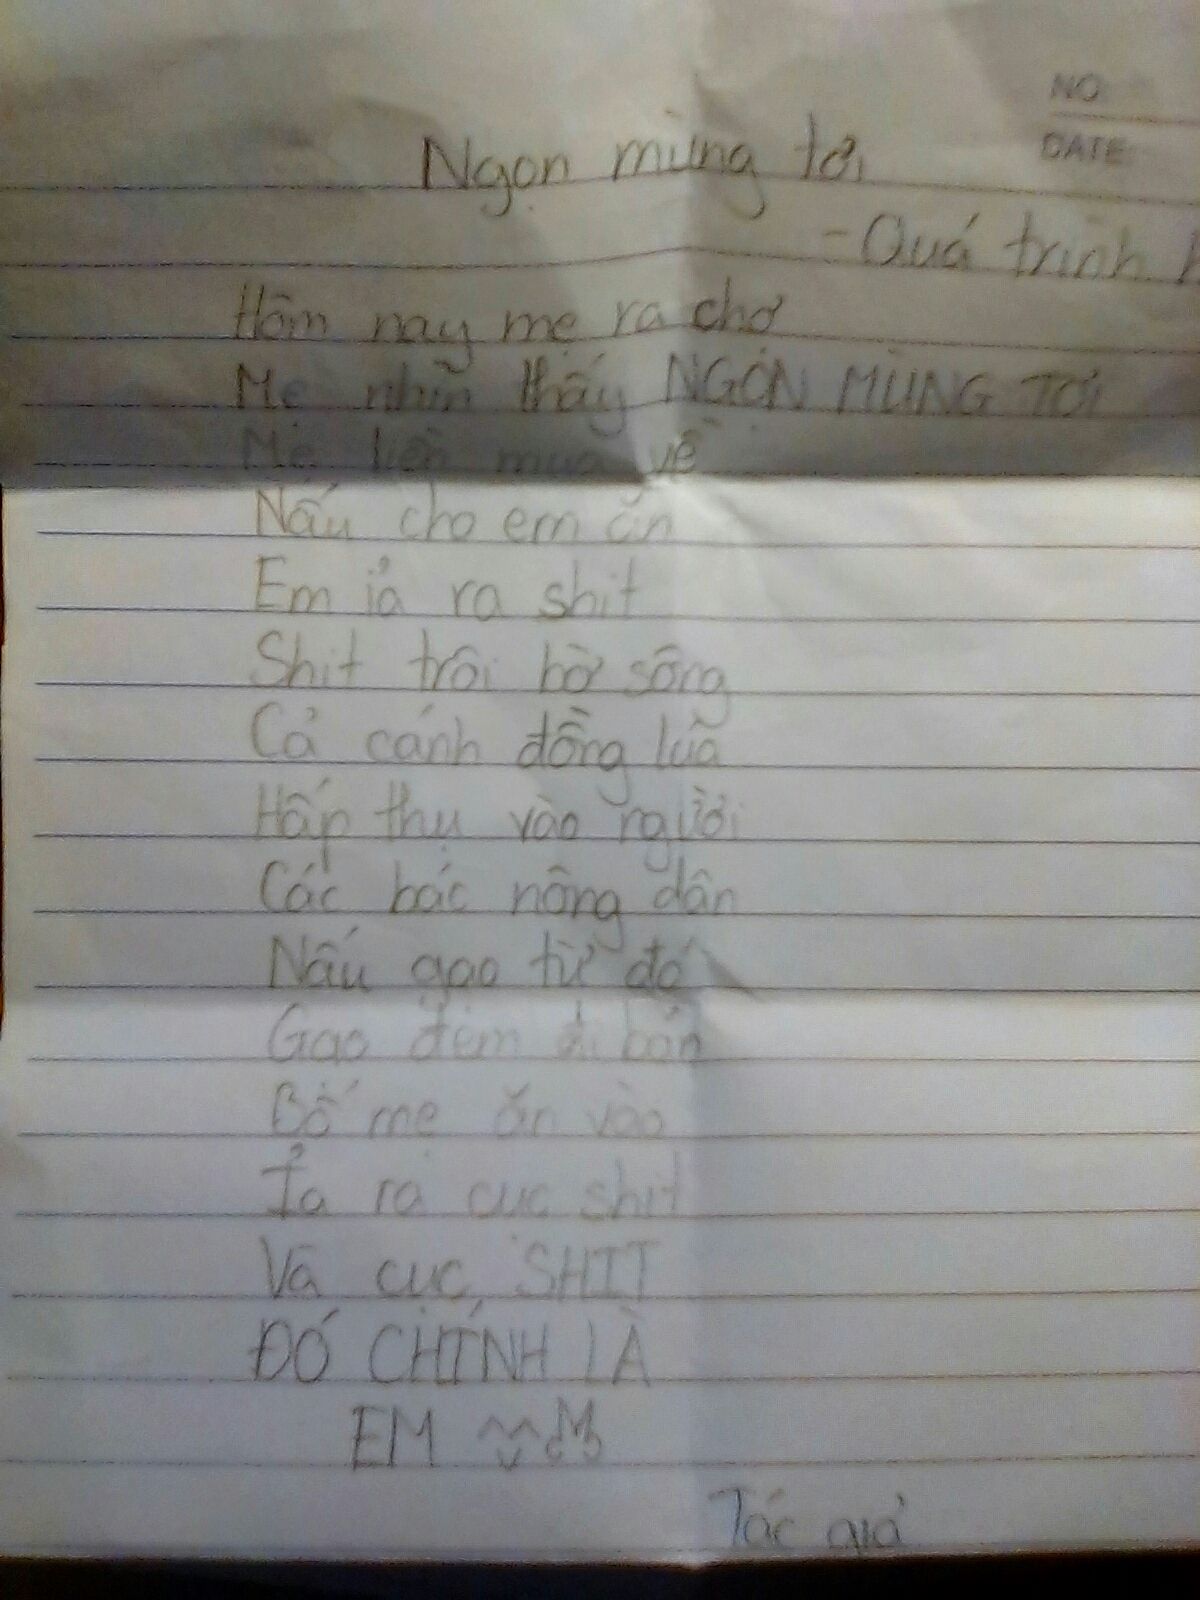 NO
DATE:
Ngọn mùng tơi
- Quá trình
Hôm nay mẹ ra chợ
Mẹ nhìn thấy NGỌN MÙNG TƠI
Mẹ liền mua về
Nấu cho em ăn
Em ỉa ra shit
Shit trôi bờ sông
Cả cánh đồng lúa
Hấp thụ vào người
Các bác nông dân
Nấu gạo từ đó
Gạo đem đi bán
Bố mẹ ăn vào
Ỉa ra cục shit
Và cục SHIT
ĐÓ CHÍNH LÀ
EM
Tác giả